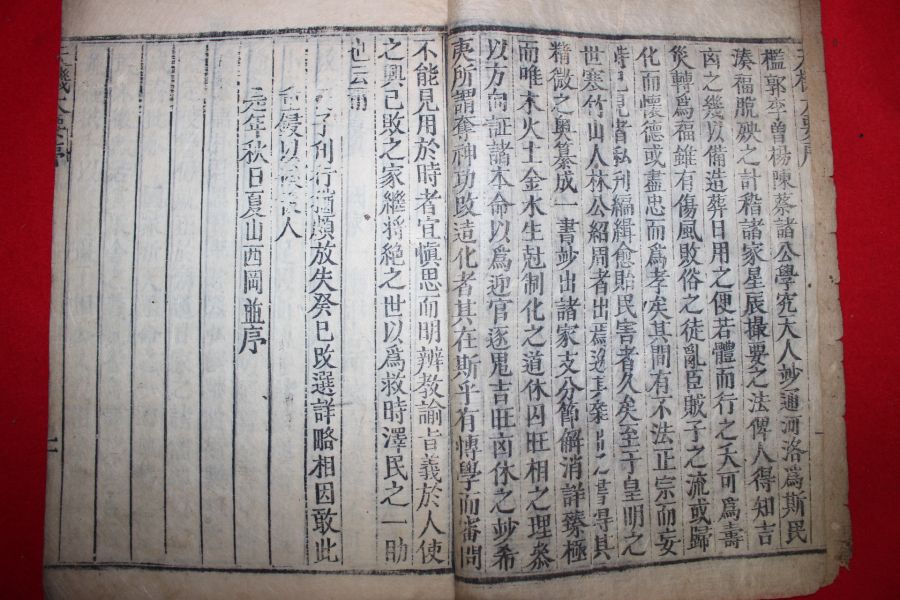 天機大要序
檻郭李曾楊陳蔡諸公學究大人妙通河洛爲斯民
湊福脫殃之計稽諸家星辰撮要之法俾人得知吉
凶之幾以備造葬日用之便若體而行之夭可爲壽
災轉爲福雖有傷風敗俗之徒亂臣賊子之流或歸
化而懷德或盡忠而爲孝矣其間有不法正宗而妄
時己見者私刋編緝愈貽民害者久矣至于皇明之
世塞竹山人林公紹周者出焉 其 書得其
精微之奧纂成一書妙出諸家支分節解消詳臻極
而唯木火土金水生尅制化之道休囚旺相之理叅
以方向証諸本命以爲迎官逐鬼吉旺凶休之妙希
夷所謂奪神功改造化者其在斯乎有博學而審問
不能見用於時者宜愼思而明辨教諭旨義於人使
之興已敗之家繼將絶之世以爲救時澤民之一助
也云爾
子刋行 頗放失癸巳改選詳略相因敢此
以 人
元年秋日夏山西岡並序
天機大要序